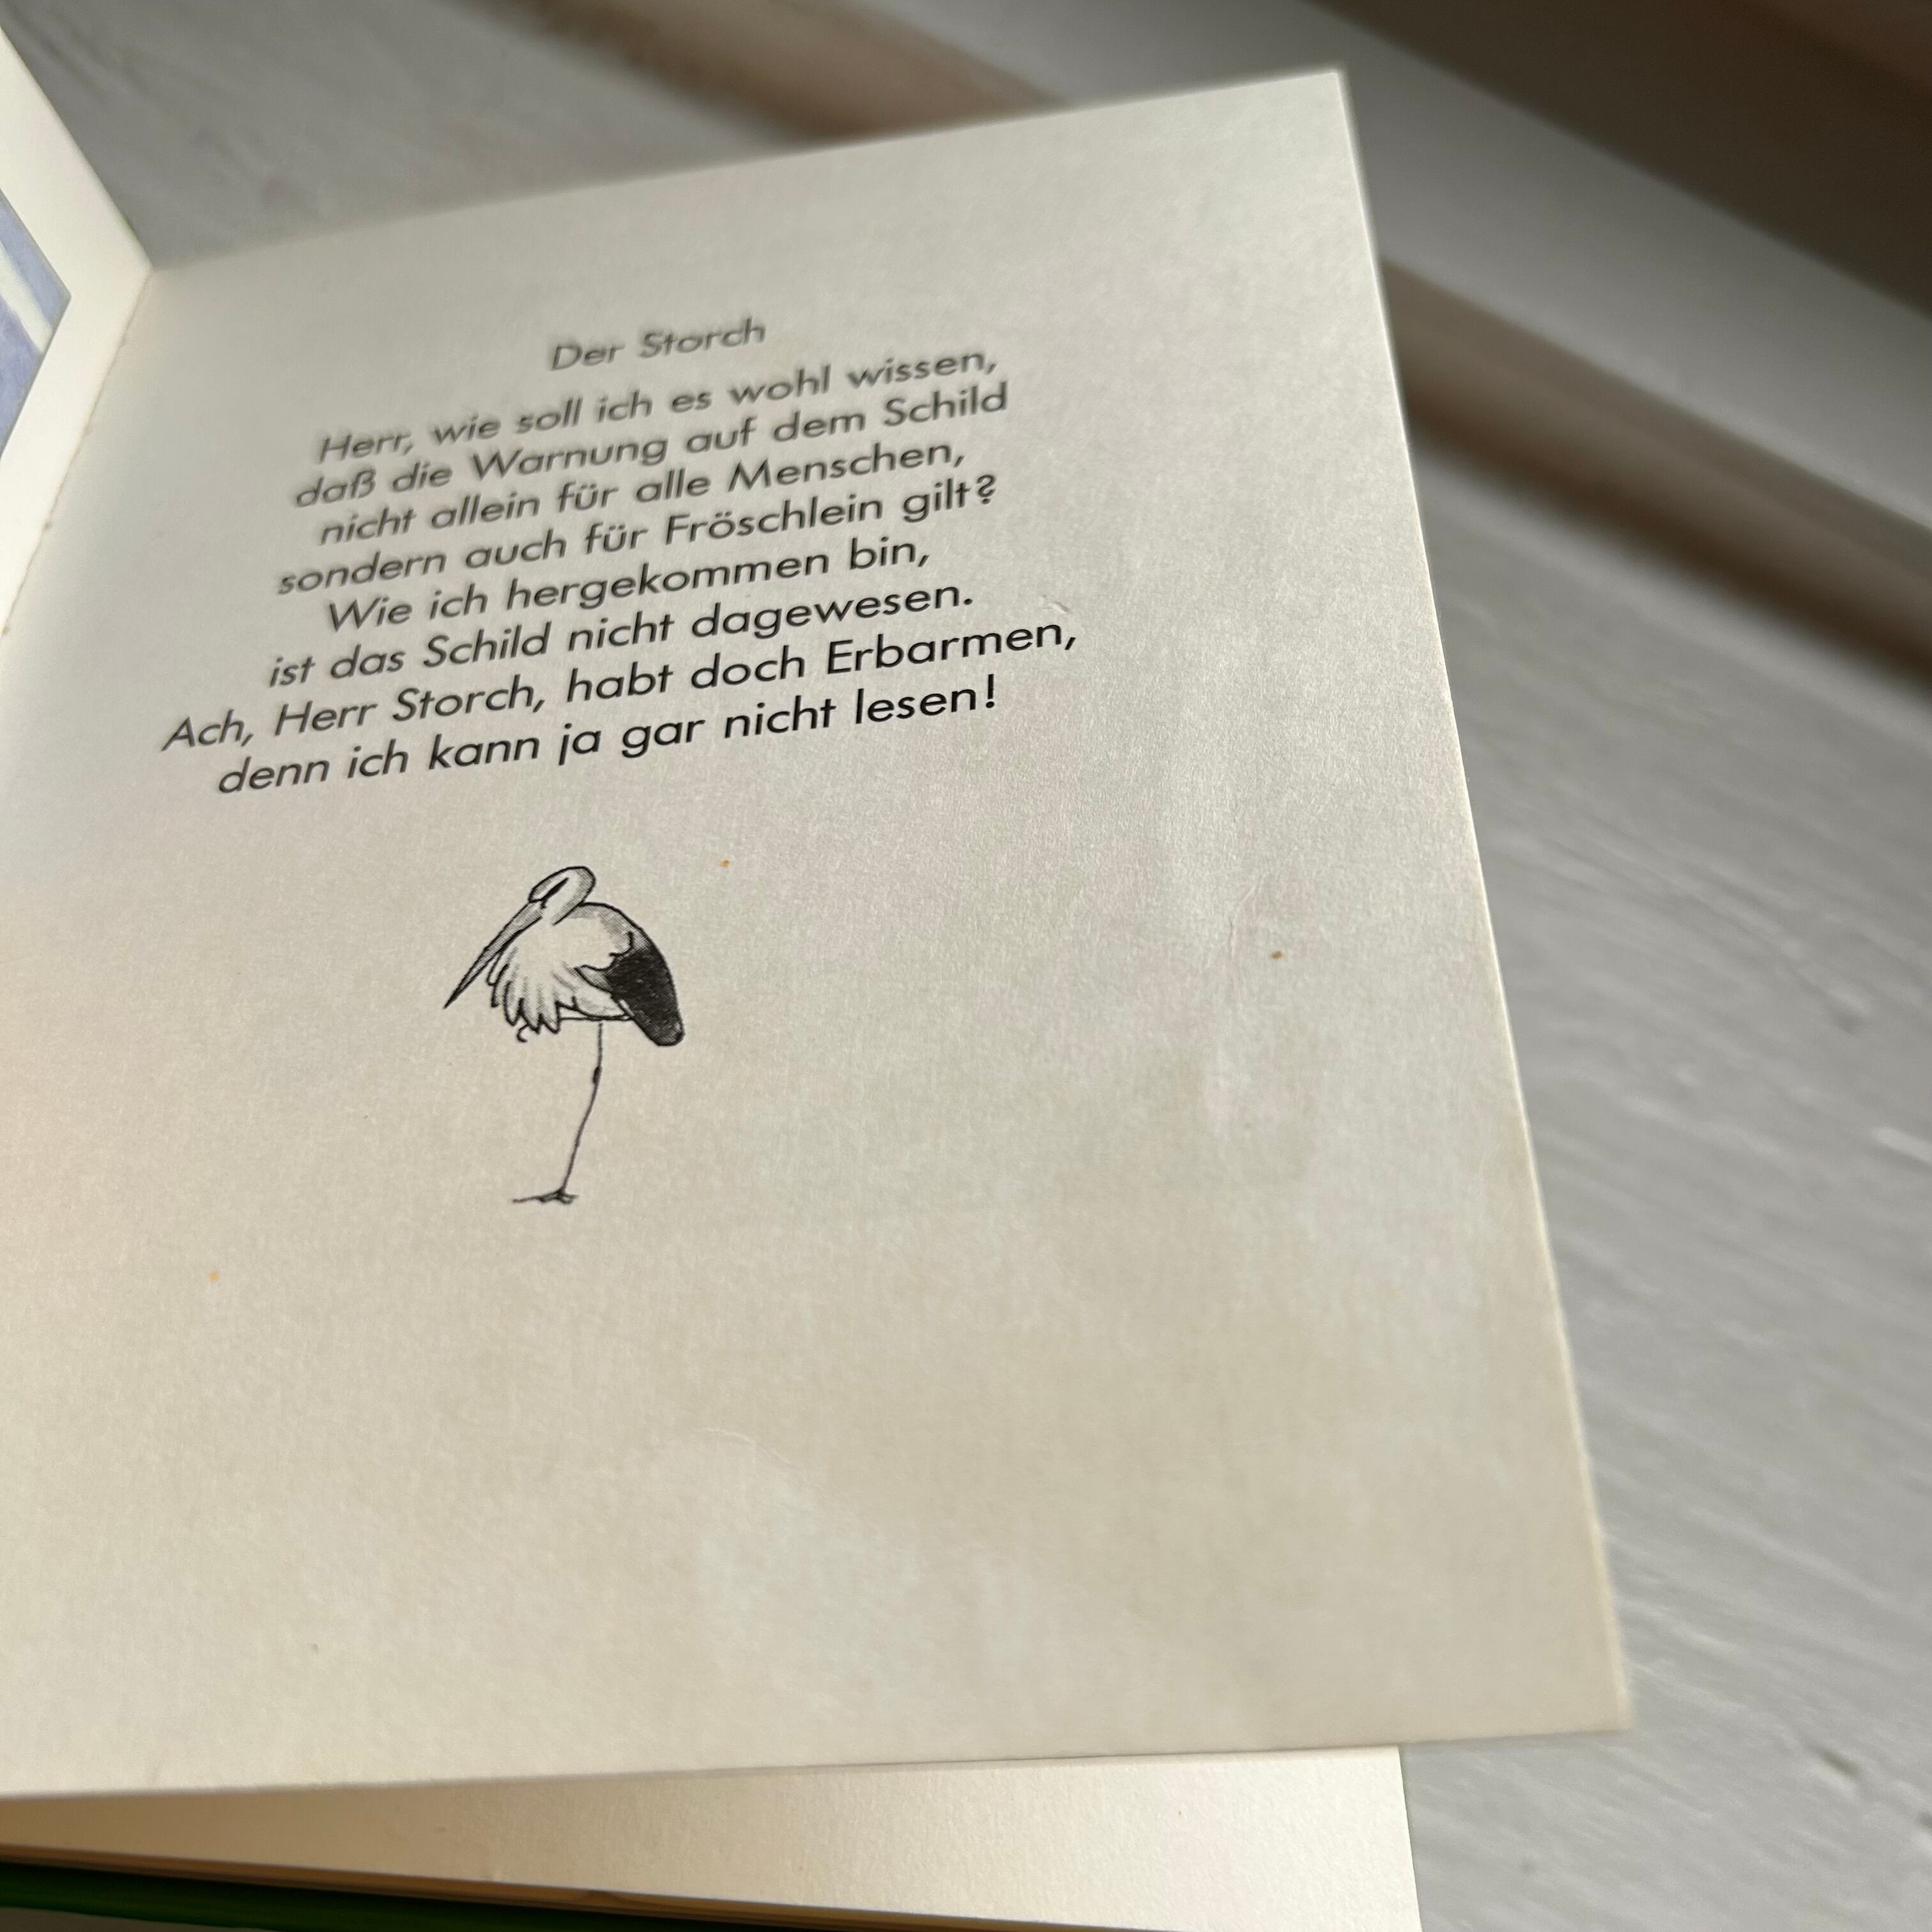 Der Storch
Herr, wie soll ich es wohl wissen,
daß die Warnung auf dem Schild
nicht allein für alle Menschen,
sondern auch für Fröschlein gilt?
Wie ich hergekommen bin,
ist das Schild nicht dagewesen.
Ach, Herr Storch, habt doch Erbarmen,
denn ich kann ja gar nicht lesen!